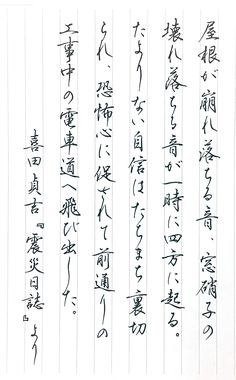 屋根が崩れ落ちる音、窓硝子の
壊れ落ちる音が一時に四方に起る。
たよりない自信はたちまち裏切
られ、恐怖心に促されて前通りの
工事中の電車道へ飛び出した。
喜田貞吉『震災日誌』より